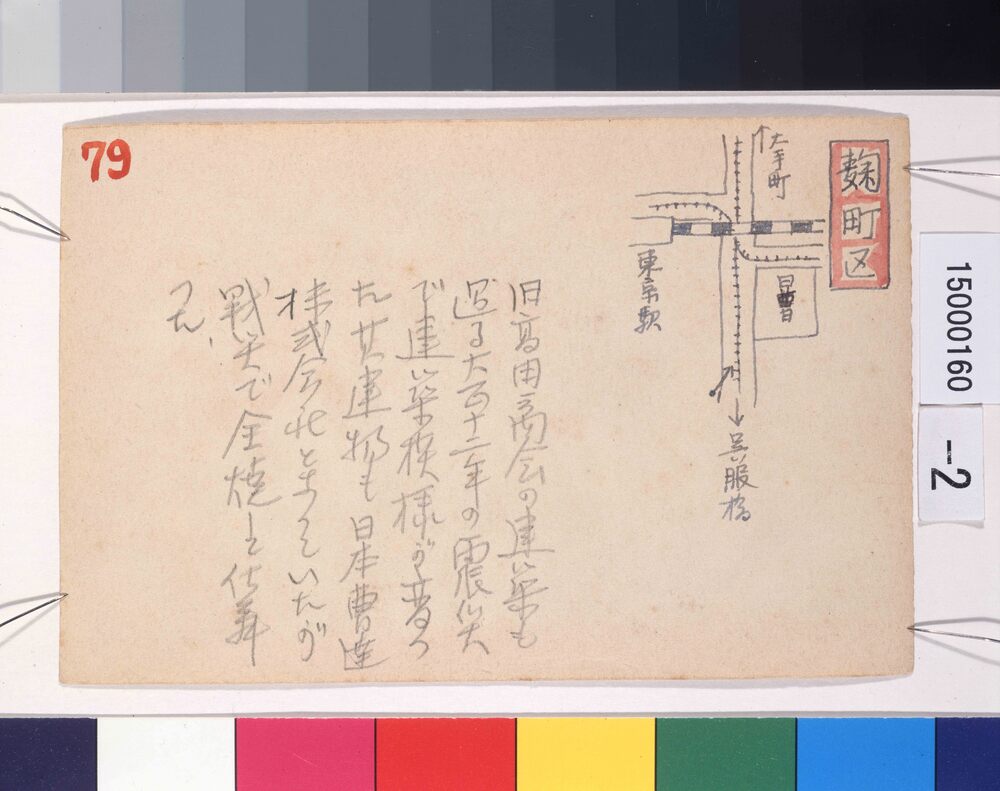 79
麹町区
大手町
東京駅
日曹
呉服橋
旧高田商会の建築も
過る大正十二年の震災
で建築模様が変つ
た其建物も日本曹達
株式会社となつていたが
戦災で全焼して仕舞
つた、
15000160
-2